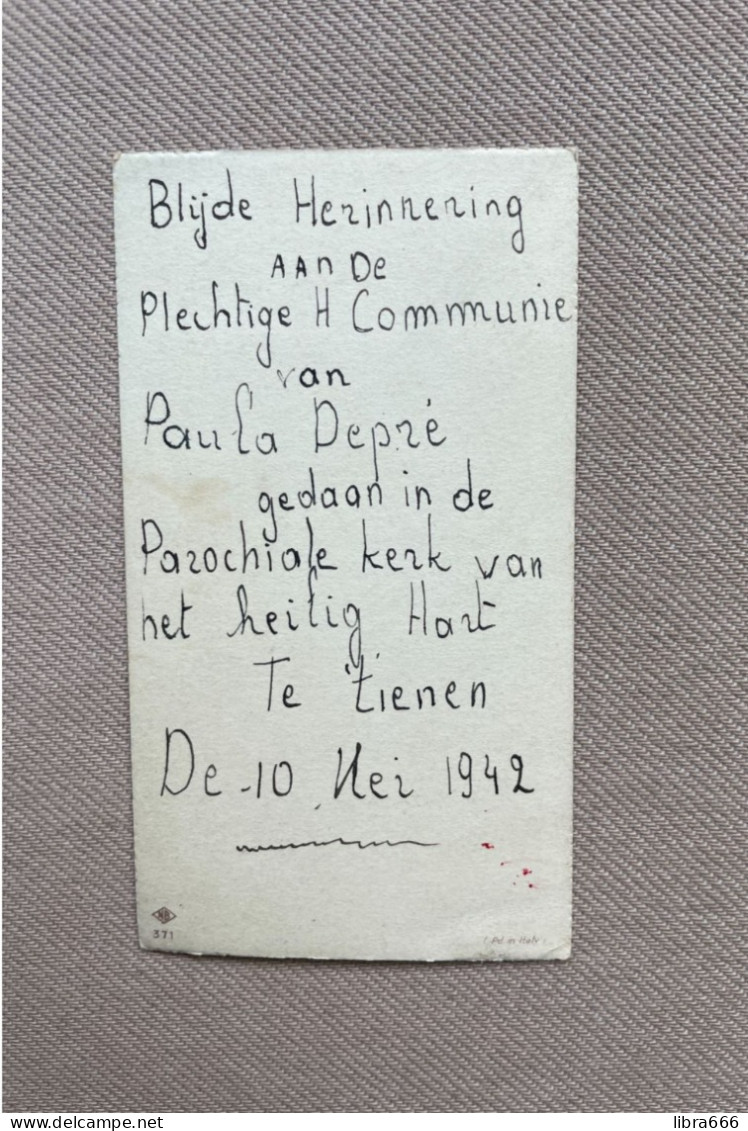 Blijde Herinnering
AAn De
Plechtige H Communie
van
Paula Depré
gedaan in de
Parochiale kerk van
het heilig Hart
Te Tienen
De 10 Mei 1942
NB
371
delcampe.net
libra666